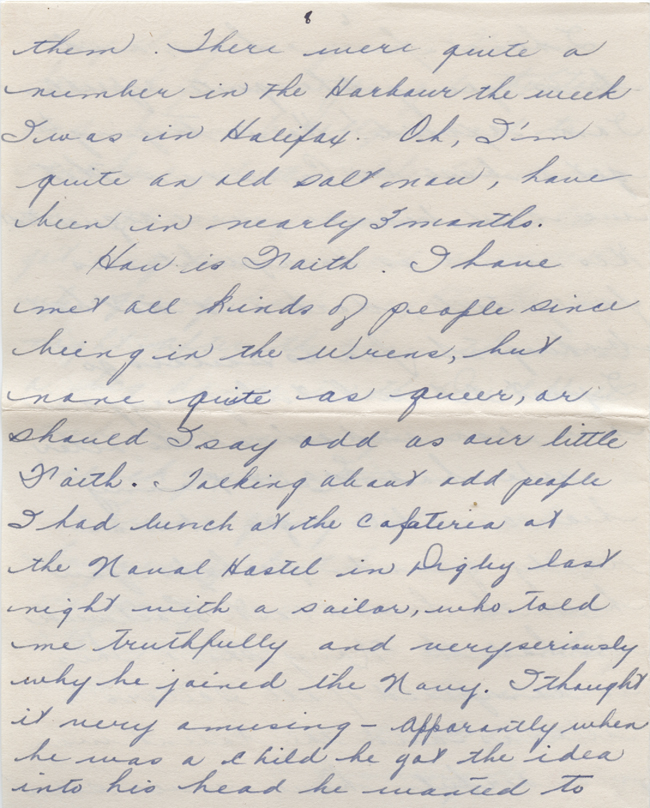 8
them. There were quite a
number in the Harbour the week
I was in Halifax. Oh, I'm
quite an old salt now, have
been in nearly 3 months.
How is Faith. I have
met all kinds of people since
being in the Wrens, but
none quite as queer, or
should I say odd as our little
Faith. Talking about odd people
I had lunch at the Cafateria at
the Naval Hostel in Digby last
night with a sailor, who told
me truthfully and very seriously
why he joined the Navy. I thought
it very amusing - Apparantly when
he was a child he got the idea
into his head he wanted to